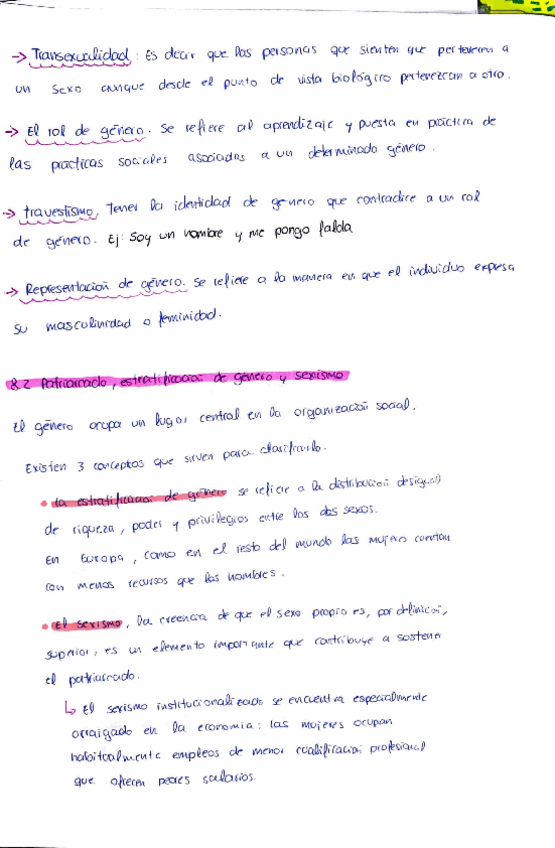 → Transexualidad: Es decir que las personas que sienten que pertenecen a
un sexo aunque desde el punto de vista biológico pertenezcan a otro.
→ El rol de género. Se refiere al aprendizaje y puesta en práctica de
las practicas sociales asociadas a un determinado género.
→ travestismo, Tener la identidad de genero que contradice a un rol
de género. Ej: Soy un hombre y me pongo falda
→ Representacion de género. se refiere a la manera en que el individuo expresa
su masculinidad o feminidad.
8.2 Patriarcado, estratificacion de género y sexismo
El género ocupa un lugar central en la organización social.
Existen 3 conceptos que sirven para clasificarlo.
• La estratificacion de género se refiere a la distribucion desigual
de riqueza, poder y privilegios entre los dos sexos.
En Europa, como en el resto del mundo las mujeres cuentan
con menos recursos que los hombres.
• El sexismo, la creencia de que el sexo propio es, por definicion,
superior, es un elemento importante que contribuye a sostener
el patriarcado.
↳ El sexismo institucionalizado se encuentra especialmente
arraigado en la economia: las mujeres ocupan
habitualmente empleos de menor cualificacion profesional
que ofrecen peores salarios.